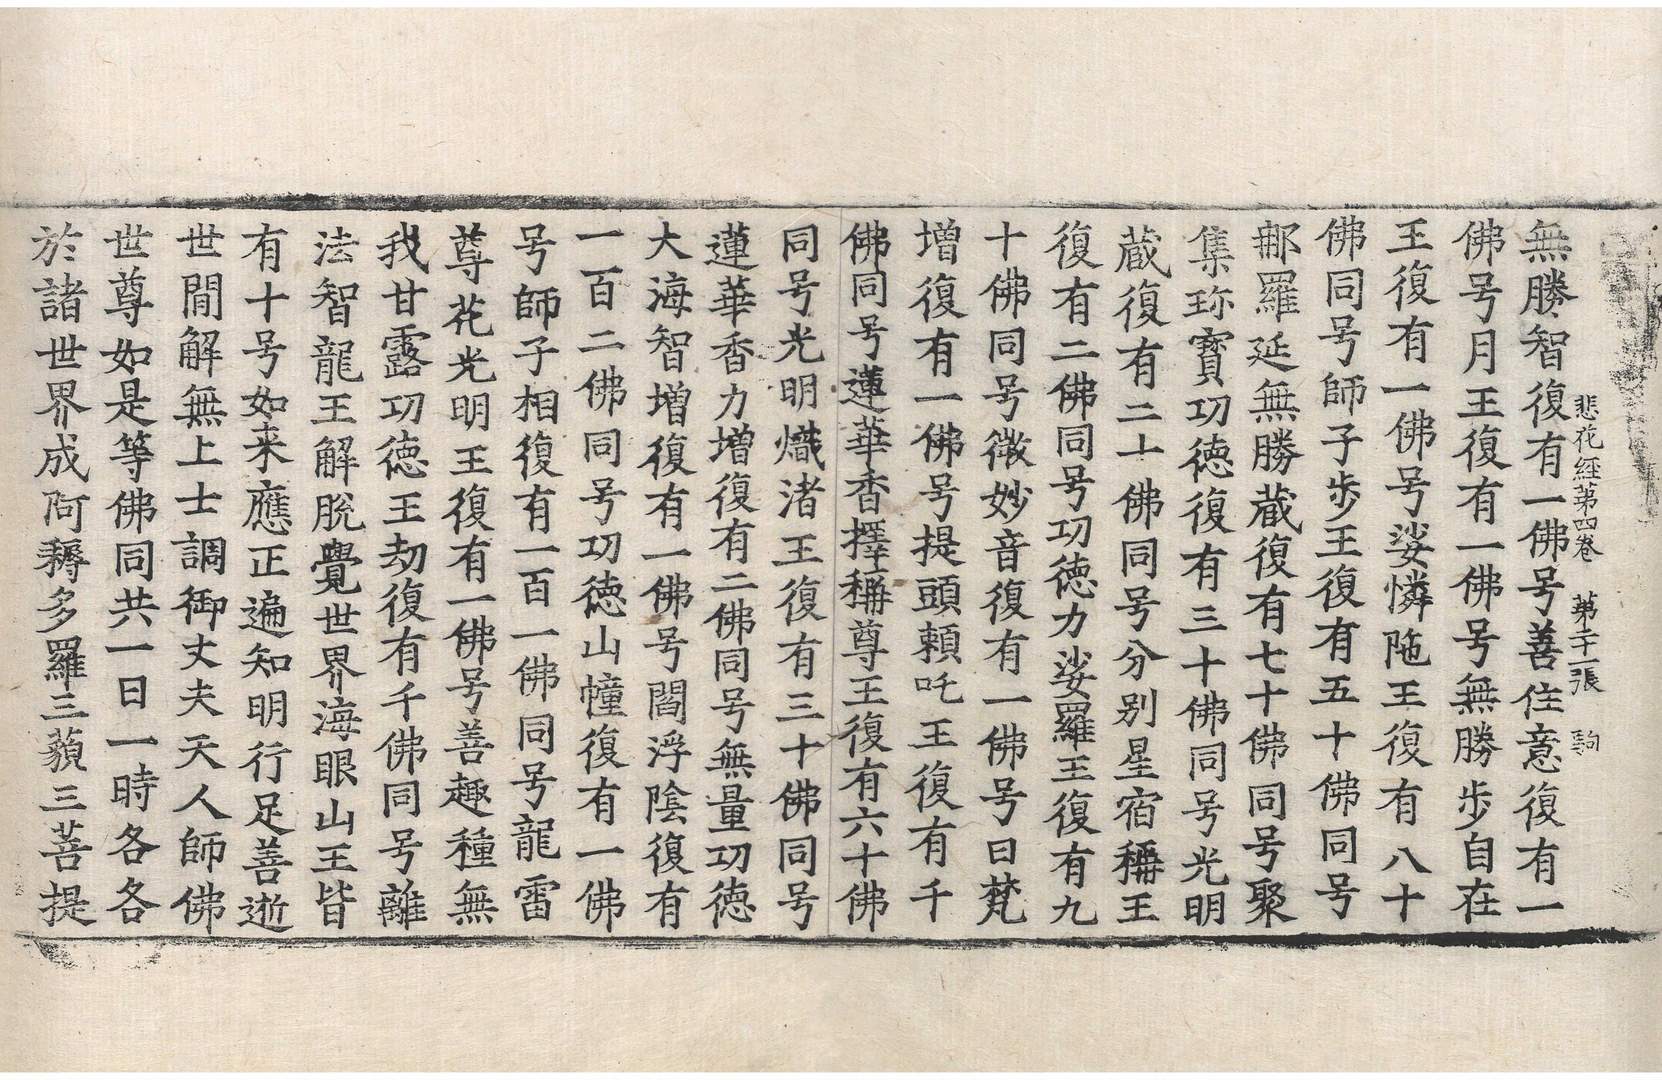 悲花経第四卷　第二十一張　駒
無勝智復有一佛号善住意復有一
佛号月王復有一佛号無勝步自在
王復有一佛号娑憐陁王復有八十
佛同号師子步王復有五十佛同号
那羅延無勝蔵復有七十佛同号聚
集珎寳功徳復有三十佛同号光明
蔵復有二十佛同号分别星宿稱王
復有二佛同号功徳力娑羅王復有九
十佛同号微妙音復有一佛号曰梵
增復有一佛号提頭頼吒王復有千
佛同号蓮華香擇稱尊王復有六十佛
同号光明熾渚王復有三十佛同号
蓮華香力增復有二佛同号無量功徳
大海智增復有一佛号閻浮陰復有
一百二佛同号功徳山幢復有一佛
号師子相復有一百一佛同号龍雷
尊花光明王復有一佛号善趣種無
我甘露功徳王劫復有千佛同号離
法智龍王解脫覺世界海眼山王皆
有十号如来應正遍知明行足善逝
世間解無上士調御丈夫天人師佛
世尊如是等佛同共一日一時各各
於諸世界成阿耨多羅三藐三菩提